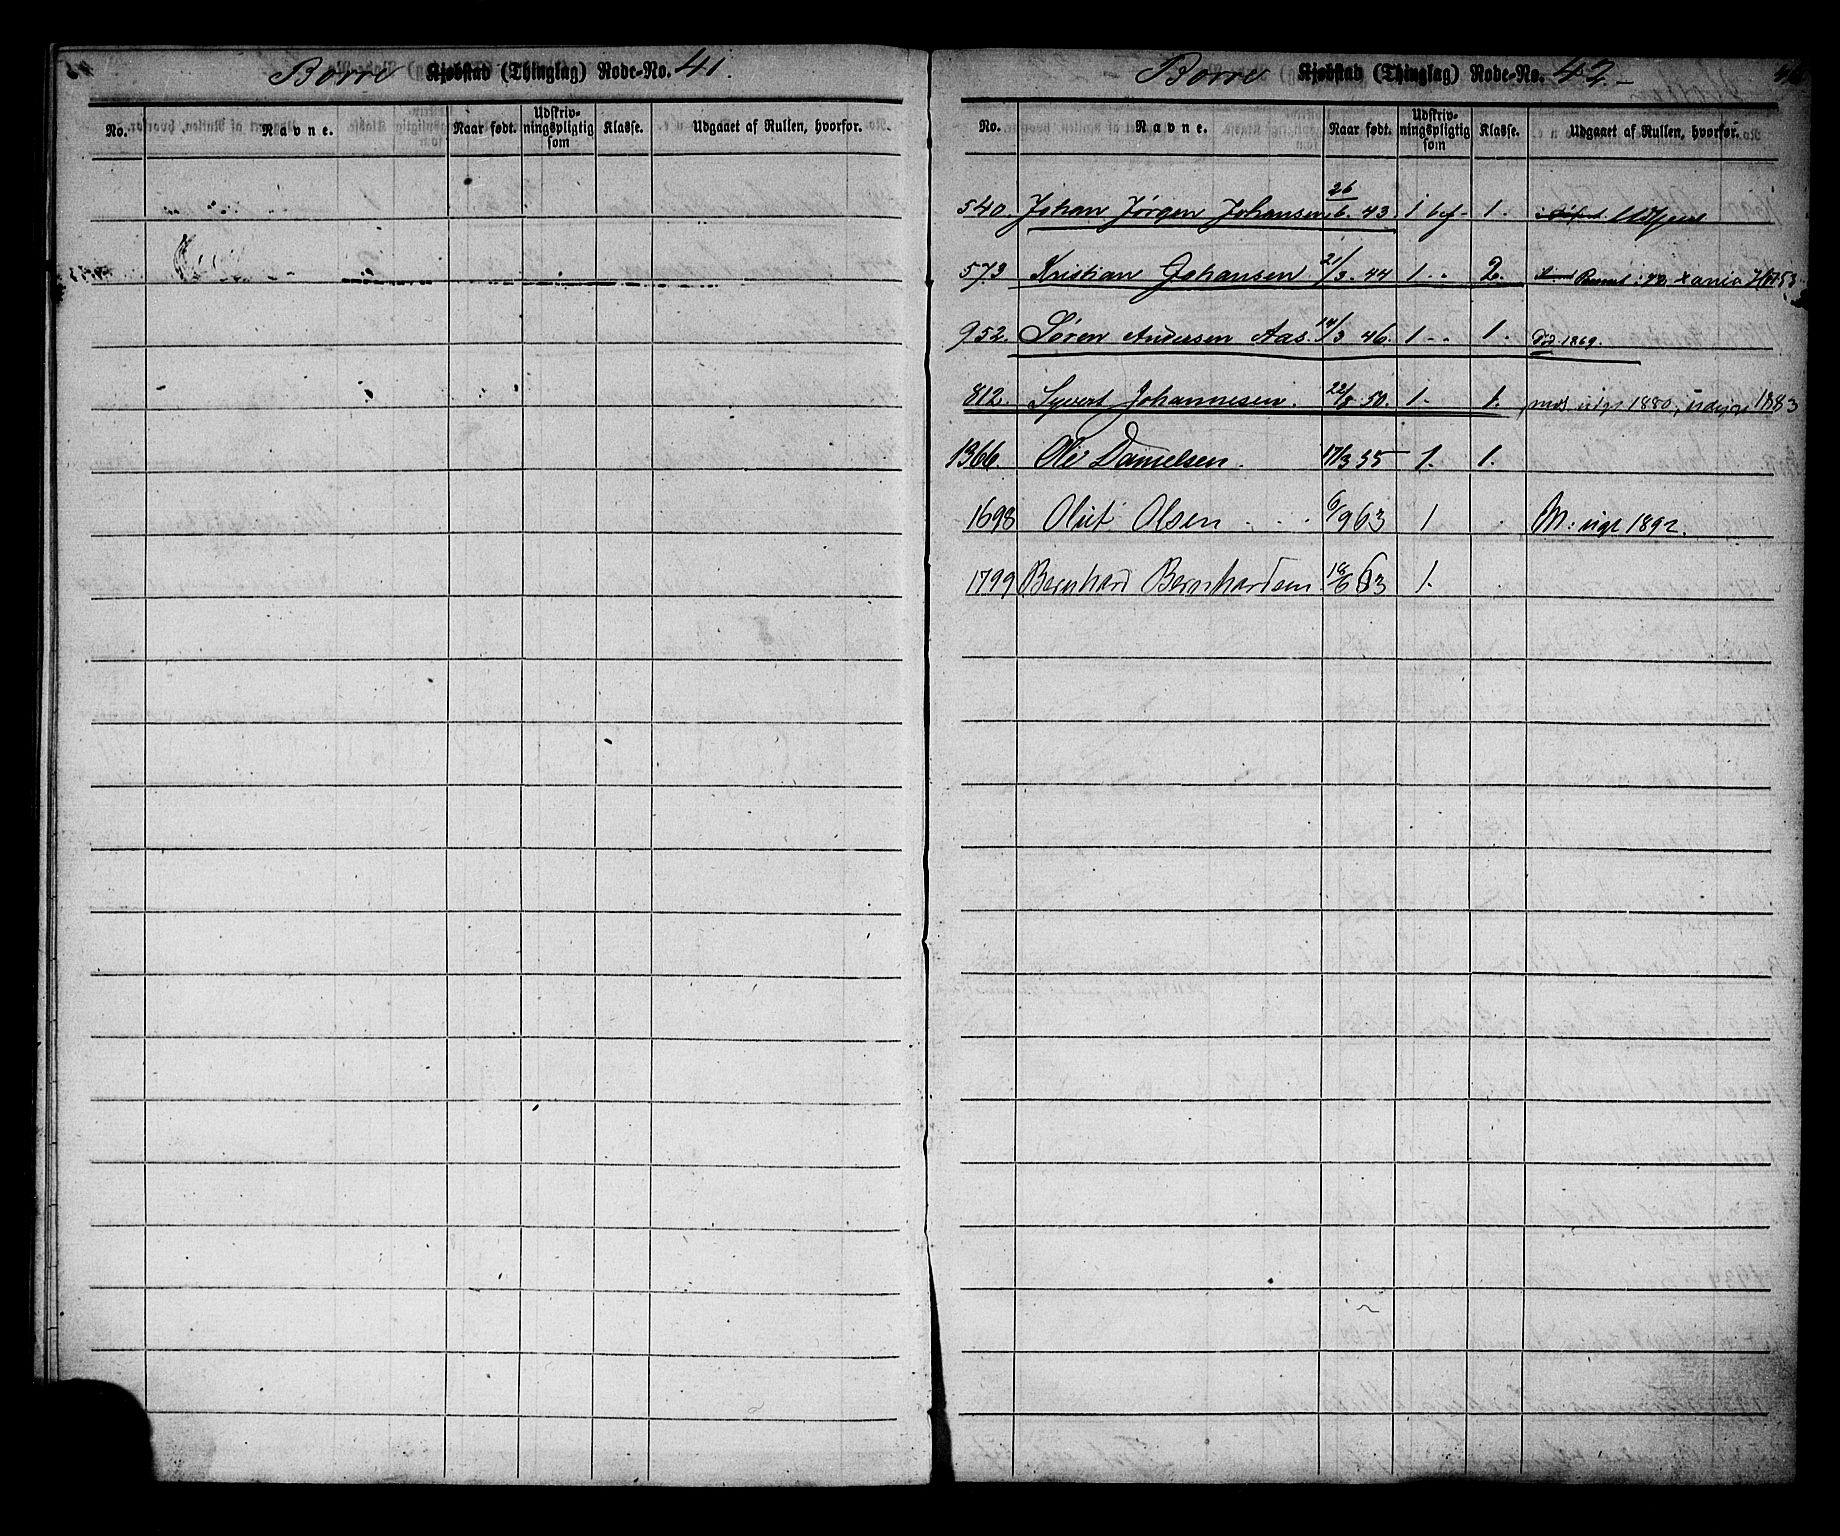 Borre Kjøbstad (Thinglag) Rode-No. 41.
No. Navne. Naar født. Udskrivningspligtig som Klasse. Udgaaet af Rullen, hvorfor.
Borre Kjøbstad (Thinglag) Rode-No. 42.-
No. Navne. Naar født. Udskrivningspligtig som Klasse. Udgaaet af Rullen, hvorfor.
540. Johan Jørgen Johansen 26/6. 43. 1 bef. 1.
573 Kristian Johansen 21/3. 44 1 - - 2.
952. Søren Andersen Aas. 14/3 46. 1 - - 1. død 1869.
812. Syvert Johannesen. 22/8 50. 1. 1. 1880, 1883
1366. Ole Danielsen. 17/3 55 1. 1.
1698 Oluf Olsen - - - 6/9 63 1 M: utgt 1892.
1799 Bernhard Bernhardsen 18/6 63 1.